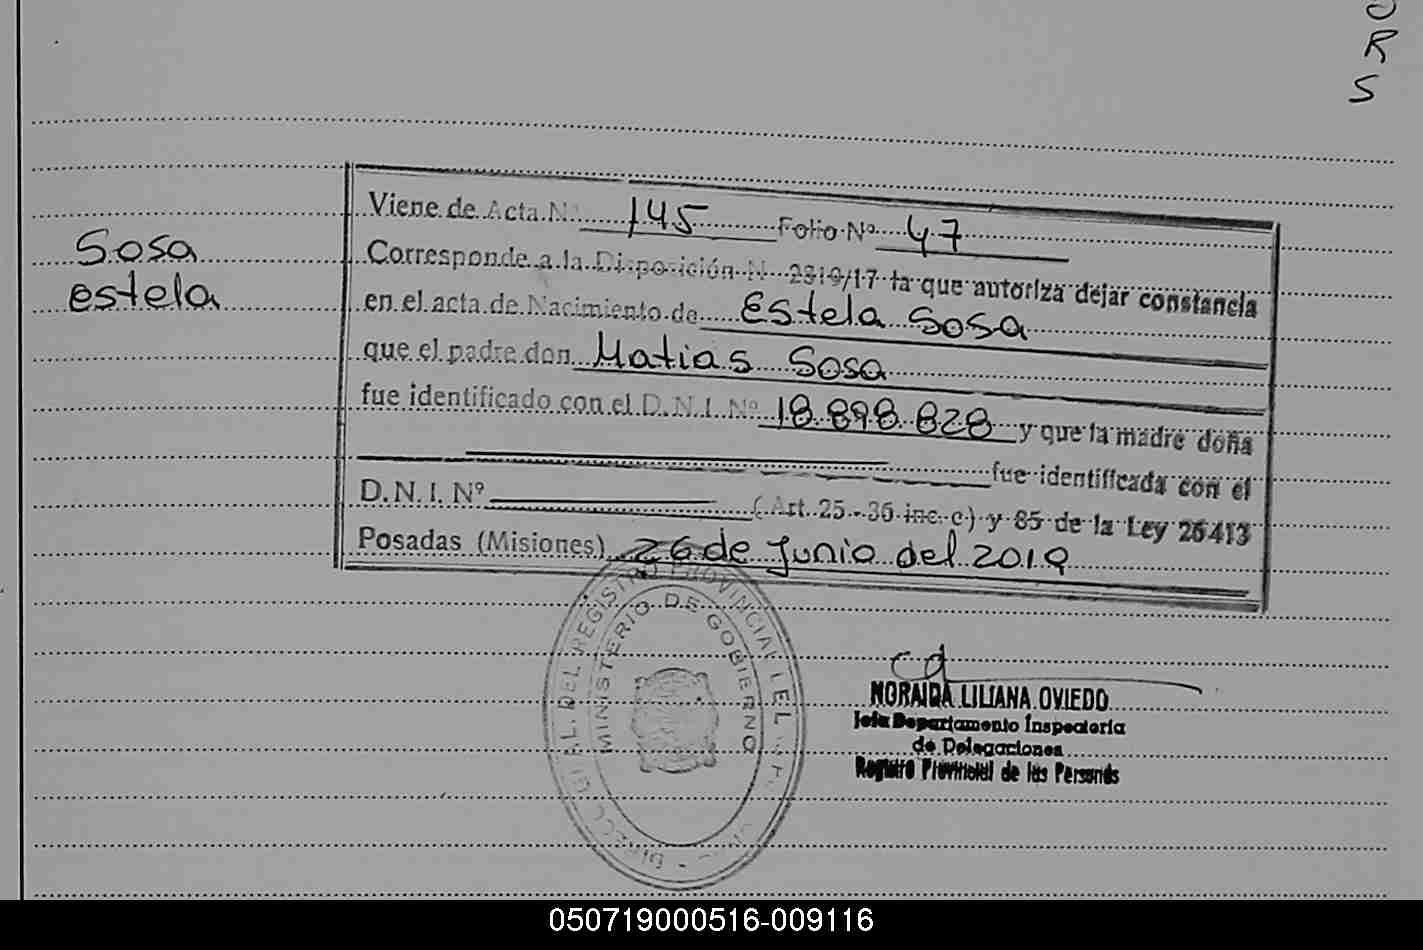 O
R
S
Viene de Acta Nº 145 Folio Nº 47
Sosa
Corresponde a la Disposición N 2819/17 la que autoriza dejar constancia
estela
en el acta de Nacimiento de Estela Sosa
que el padre don Matias Sosa
fue identificado con el D.N.I. Nº 18.898.828 y que la madre doña
fue identificada con el
D.N.I. Nº (Art. 25 - 36 inc. c) y 85 de la Ley 26413
Posadas (Misiones) 26 de Junio del 2019
DIRECC GRAL. DEL REGISTRO PROVINCIAL DE
MINISTERIO DE GOBIERNO
NORAIDA LILIANA OVIEDO
Jefa Departamento Inspectoria
de Delegaciones
Registro Provincial de las Personas
050719000516-009116